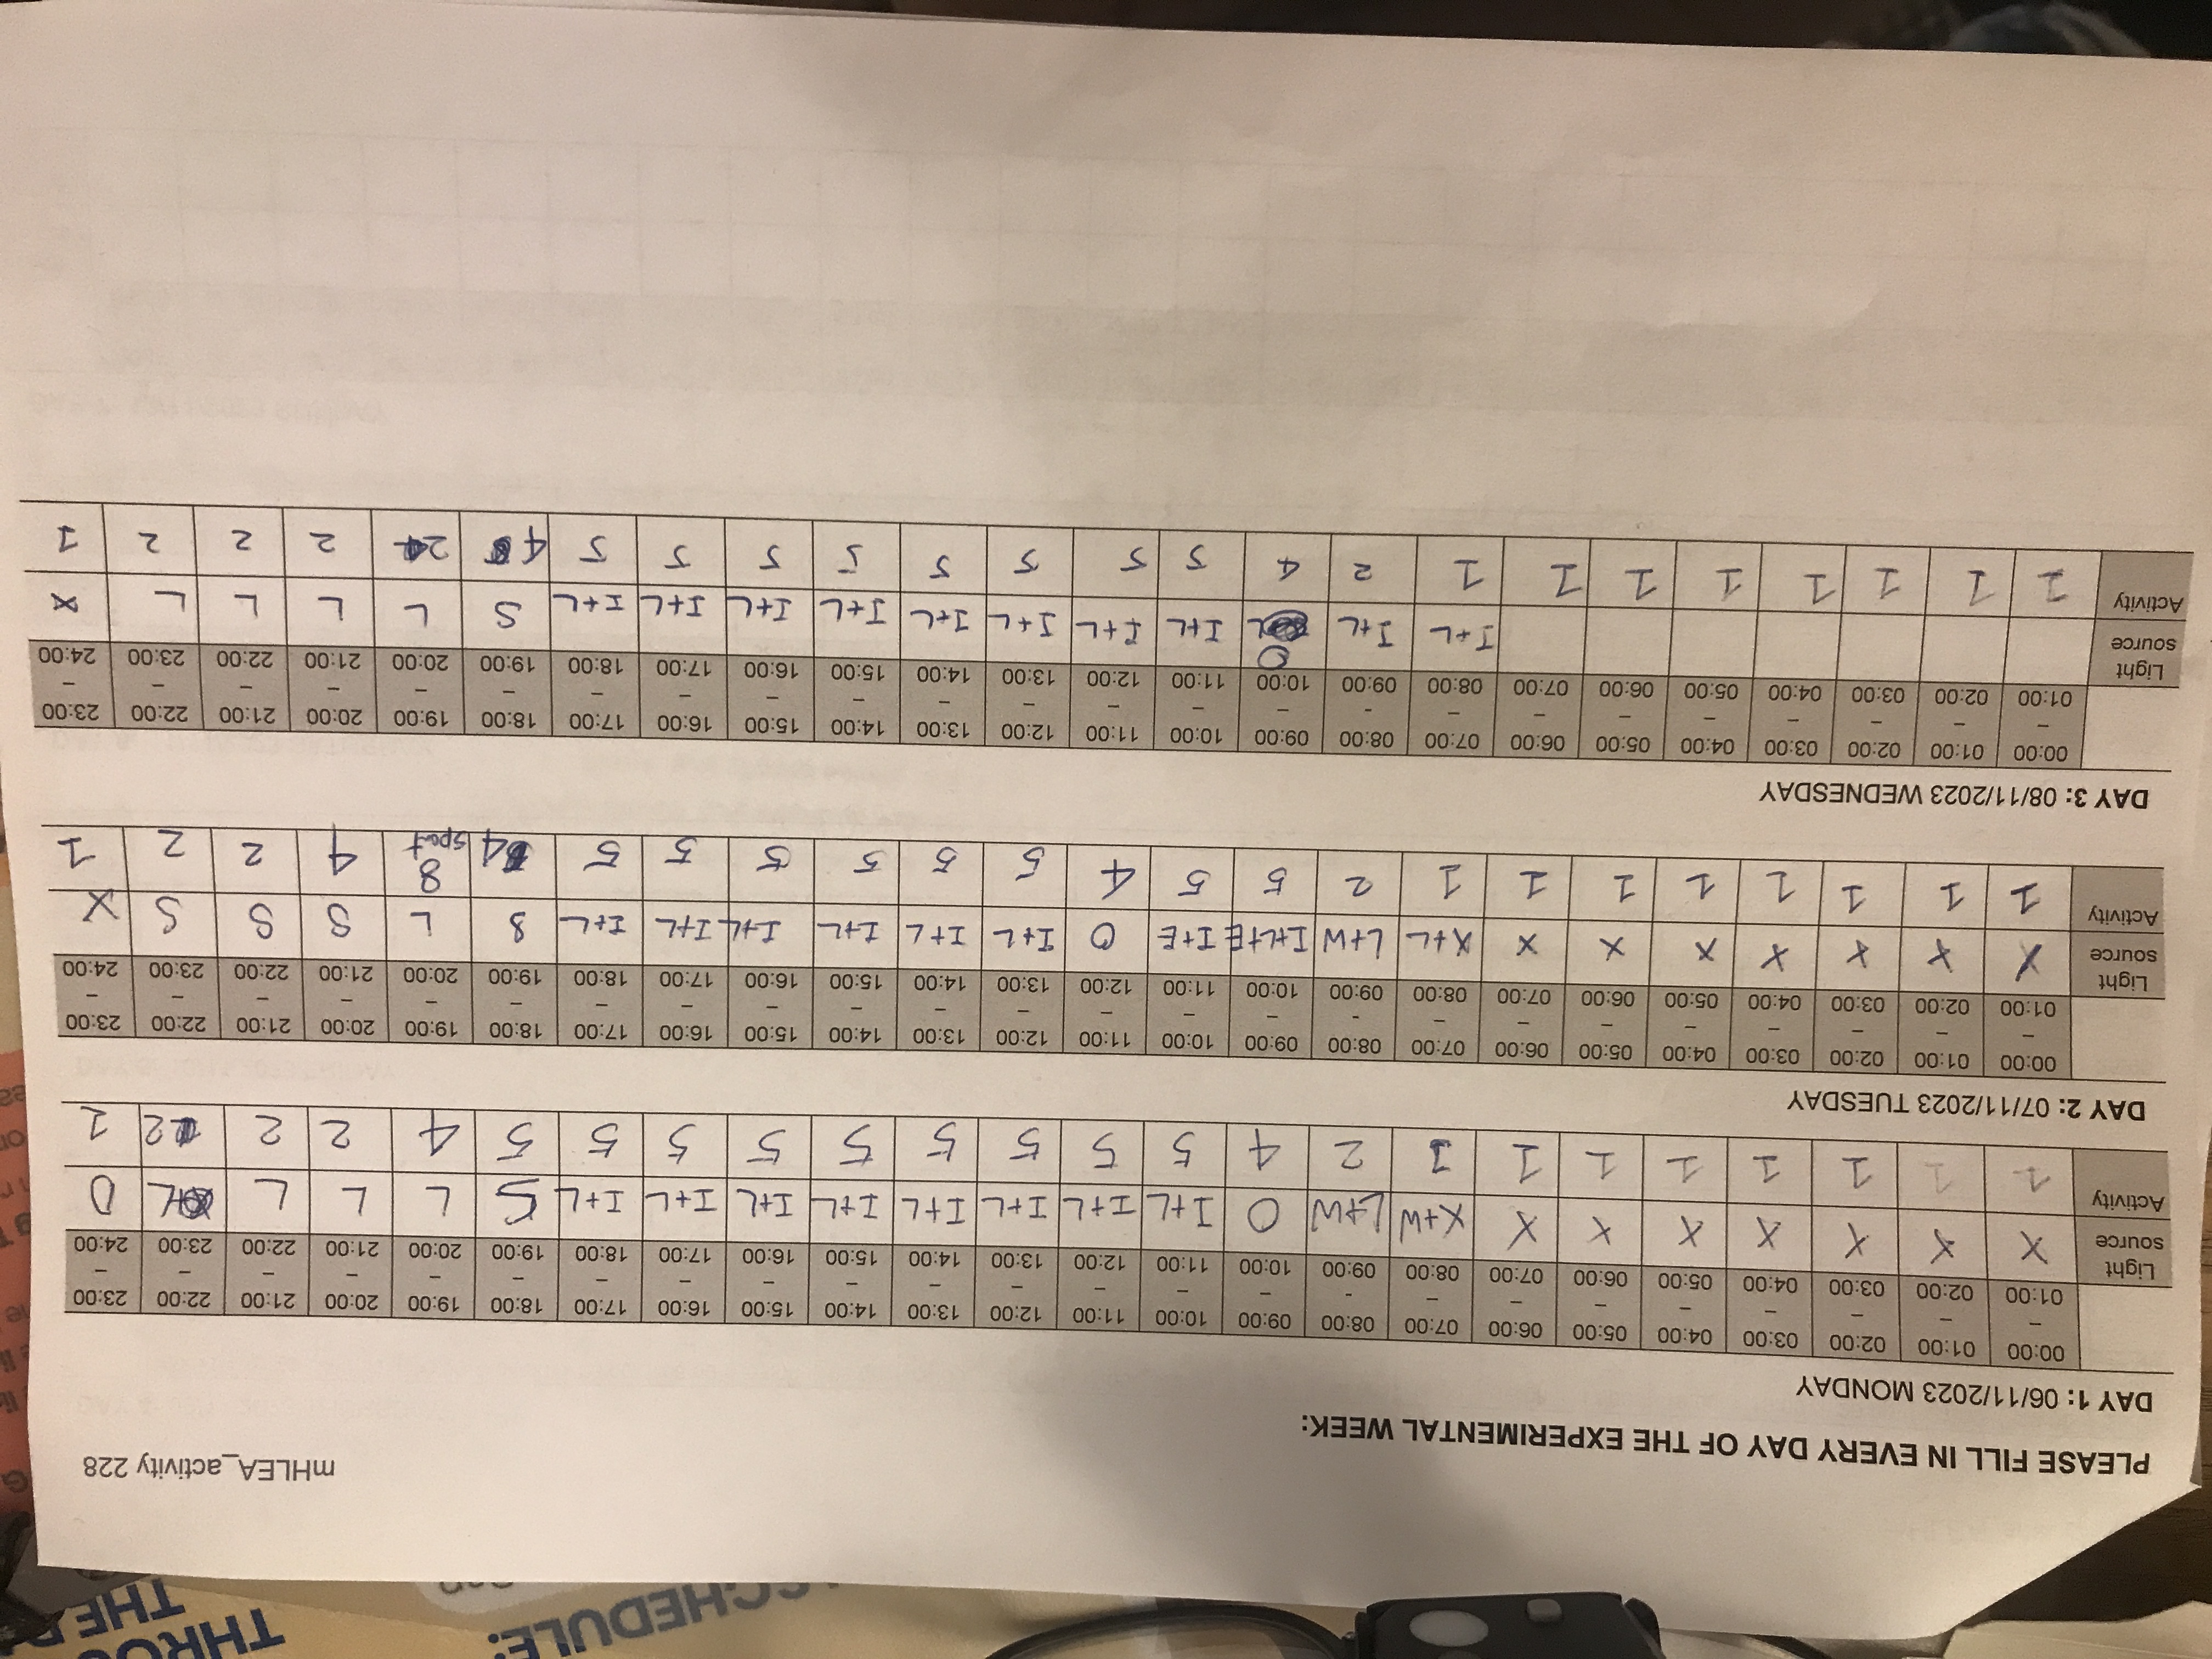 mHLEA_activity 228
PLEASE FILL IN EVERY DAY OF THE EXPERIMENTAL WEEK:
DAY 1: 06/11/2023 MONDAY
00:00 – 01:00 01:00 – 02:00 02:00 – 03:00 03:00 – 04:00 04:00 – 05:00 05:00 – 06:00 06:00 – 07:00 07:00 – 08:00 08:00 - 09:00 09:00 – 10:00 10:00 – 11:00 11:00 – 12:00 12:00 – 13:00 13:00 – 14:00 14:00 – 15:00 15:00 – 16:00 16:00 – 17:00 17:00 – 18:00 18:00 – 19:00 19:00 – 20:00 20:00 – 21:00 21:00 – 22:00 22:00 – 23:00 23:00 – 24:00
Light source X X X X X X X X+W L+W O I+L I+L I+L I+L I+L I+L I+L I+L S L L L L O
Activity 1 1 1 1 1 1 1 1 2 4 5 5 5 5 5 5 5 5 5 4 2 2 2 1
DAY 2: 07/11/2023 TUESDAY
00:00 – 01:00 01:00 – 02:00 02:00 – 03:00 03:00 – 04:00 04:00 – 05:00 05:00 – 06:00 06:00 – 07:00 07:00 – 08:00 08:00 - 09:00 09:00 – 10:00 10:00 – 11:00 11:00 – 12:00 12:00 – 13:00 13:00 – 14:00 14:00 – 15:00 15:00 – 16:00 16:00 – 17:00 17:00 – 18:00 18:00 – 19:00 19:00 – 20:00 20:00 – 21:00 21:00 – 22:00 22:00 – 23:00 23:00 – 24:00
Light source X X X X X X X X+L L+W I+L+E I+E O I+L I+L I+L I+L I+L I+L S L S S S X
Activity 1 1 1 1 1 1 1 1 2 5 5 4 5 5 5 5 5 5 4 8 sport 4 2 2 1
DAY 3: 08/11/2023 WEDNESDAY
00:00 – 01:00 01:00 – 02:00 02:00 – 03:00 03:00 – 04:00 04:00 – 05:00 05:00 – 06:00 06:00 – 07:00 07:00 – 08:00 08:00 - 09:00 09:00 – 10:00 10:00 – 11:00 11:00 – 12:00 12:00 – 13:00 13:00 – 14:00 14:00 – 15:00 15:00 – 16:00 16:00 – 17:00 17:00 – 18:00 18:00 – 19:00 19:00 – 20:00 20:00 – 21:00 21:00 – 22:00 22:00 – 23:00 23:00 – 24:00
Light source I+L I+L O I+L I+L I+L I+L I+L I+L I+L I+L S L L L L X
Activity 1 1 1 1 1 1 1 1 2 4 5 5 5 5 5 5 5 5 4 2 2 2 2 1
SCHEDULE: